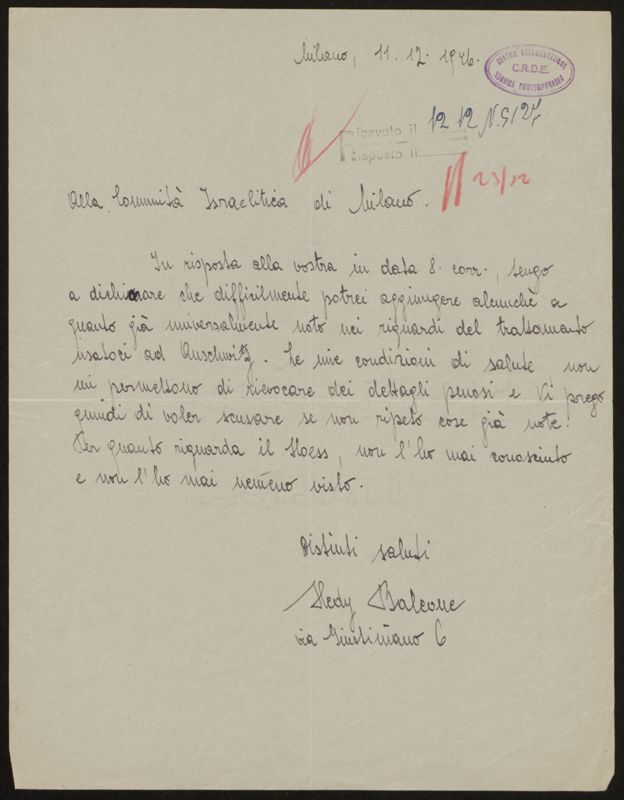 Milano, 11. 12. 1946.
CENTRO DOCUMENTAZIONE
C.R.D.E.
EBRAICA CONTEMPORANEA
Ricevuto il 12 12 N.
Risposto il
23/12
Alla Comunità Israelitica di Milano.
In risposta alla vostra in data 8. corr., tengo
a dichiarare che difficilmente potrei aggiungere alcunchè a
quanto già universalmente noto nei riguardi del trattamento
usatoci ad Auschwitz. Le mie condizioni di salute non
mi permettono di rievocare dei dettagli penosi e Vi prego
quindi di voler scusare se non ripeto cose già note.
Per quanto riguarda il Hoess, non l'ho mai conosciuto
e non l'ho mai nemeno visto.
Distinti saluti
Hedy Balcone
via Giustiniano 6